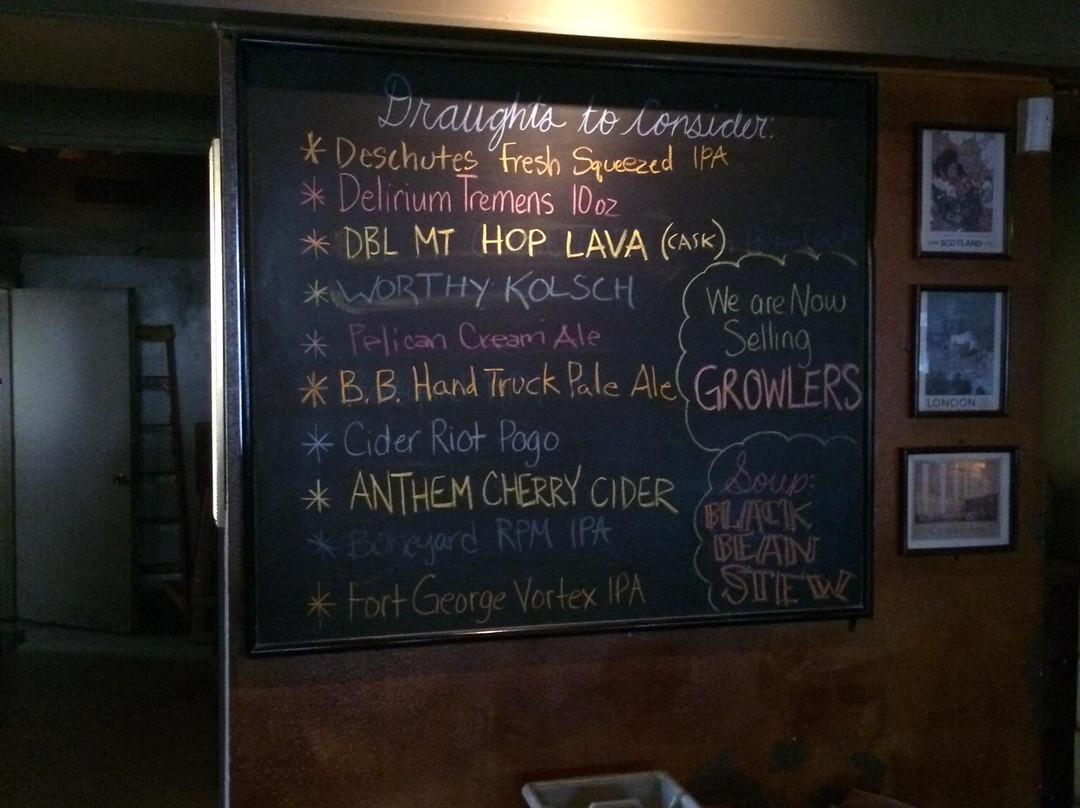 Draughts to Consider:
* Deschutes Fresh Squeezed IPA
* Delirium Tremens 10oz
* DBL MT HOP LAVA (CASK)
* WORTHY KOLSCH
* Pelican Cream Ale
* B.B. Hand Truck Pale Ale
* Cider Riot Pogo
* ANTHEM CHERRY CIDER
* Boneyard RPM IPA
* Fort George Vortex IPA
We are Now
Selling
GROWLERS
Soup:
BLACK
BEAN
STEW
SCOTLAND
LONDON